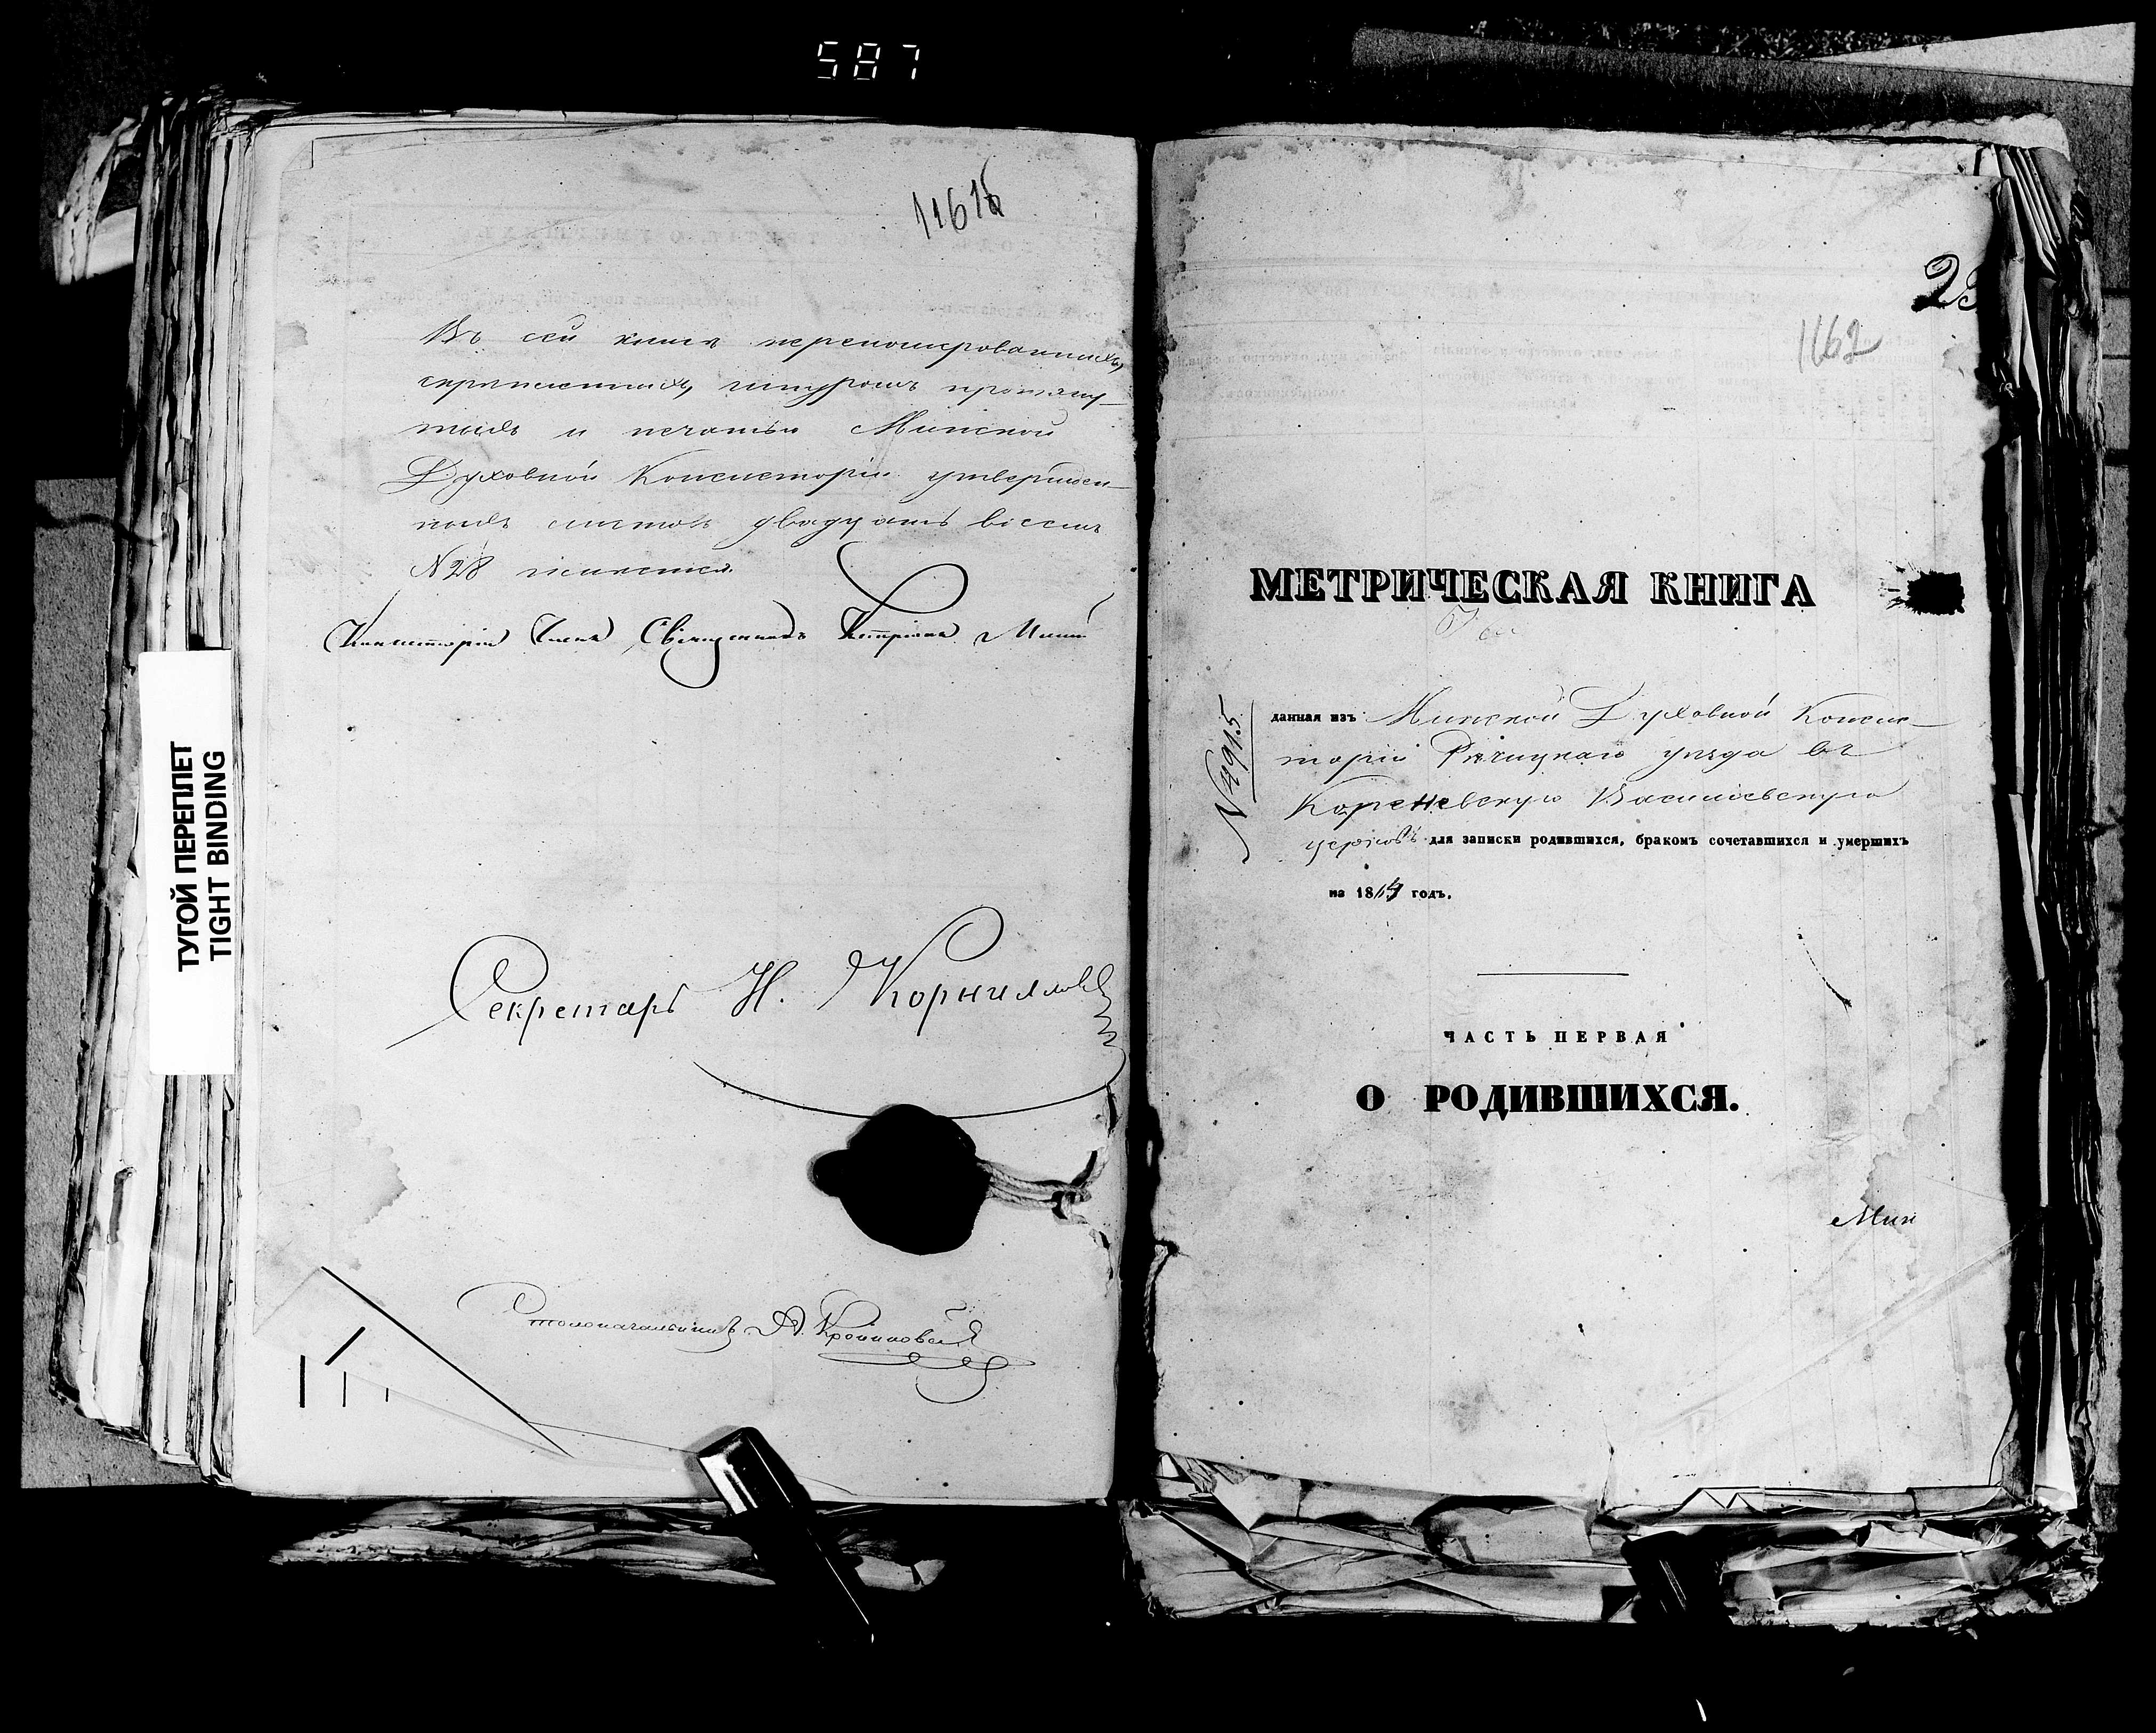 587
ТУГОЙ ПЕРЕПЛЕТ
TIGHT BINDING
Въ сей книгѣ перенумерованныхъ,
скрѣпленныхъ, шнуромъ протяну-
тыхъ и печатью Минской
Духовной Консисторіи утвержден-
ныхъ листовъ двадцать восемь
№ 28 имѣется.
Консисторіи Членъ Священникъ
Секретарь Н. Корниловъ
Столоначальникъ А.
23
1162
МЕТРИЧЕСКАЯ КНИГА
№ 4915
данная изъ Минской Духовной Консис-
торіи Рѣчицкаго уѣзда въ
Кореневскую Васильевскую
церковь для записки родившихся, бракомъ сочетавшихся и умершихъ
на 1864 годъ.
ЧАСТЬ ПЕРВАЯ
О РОДИВШИХСЯ.
Мин